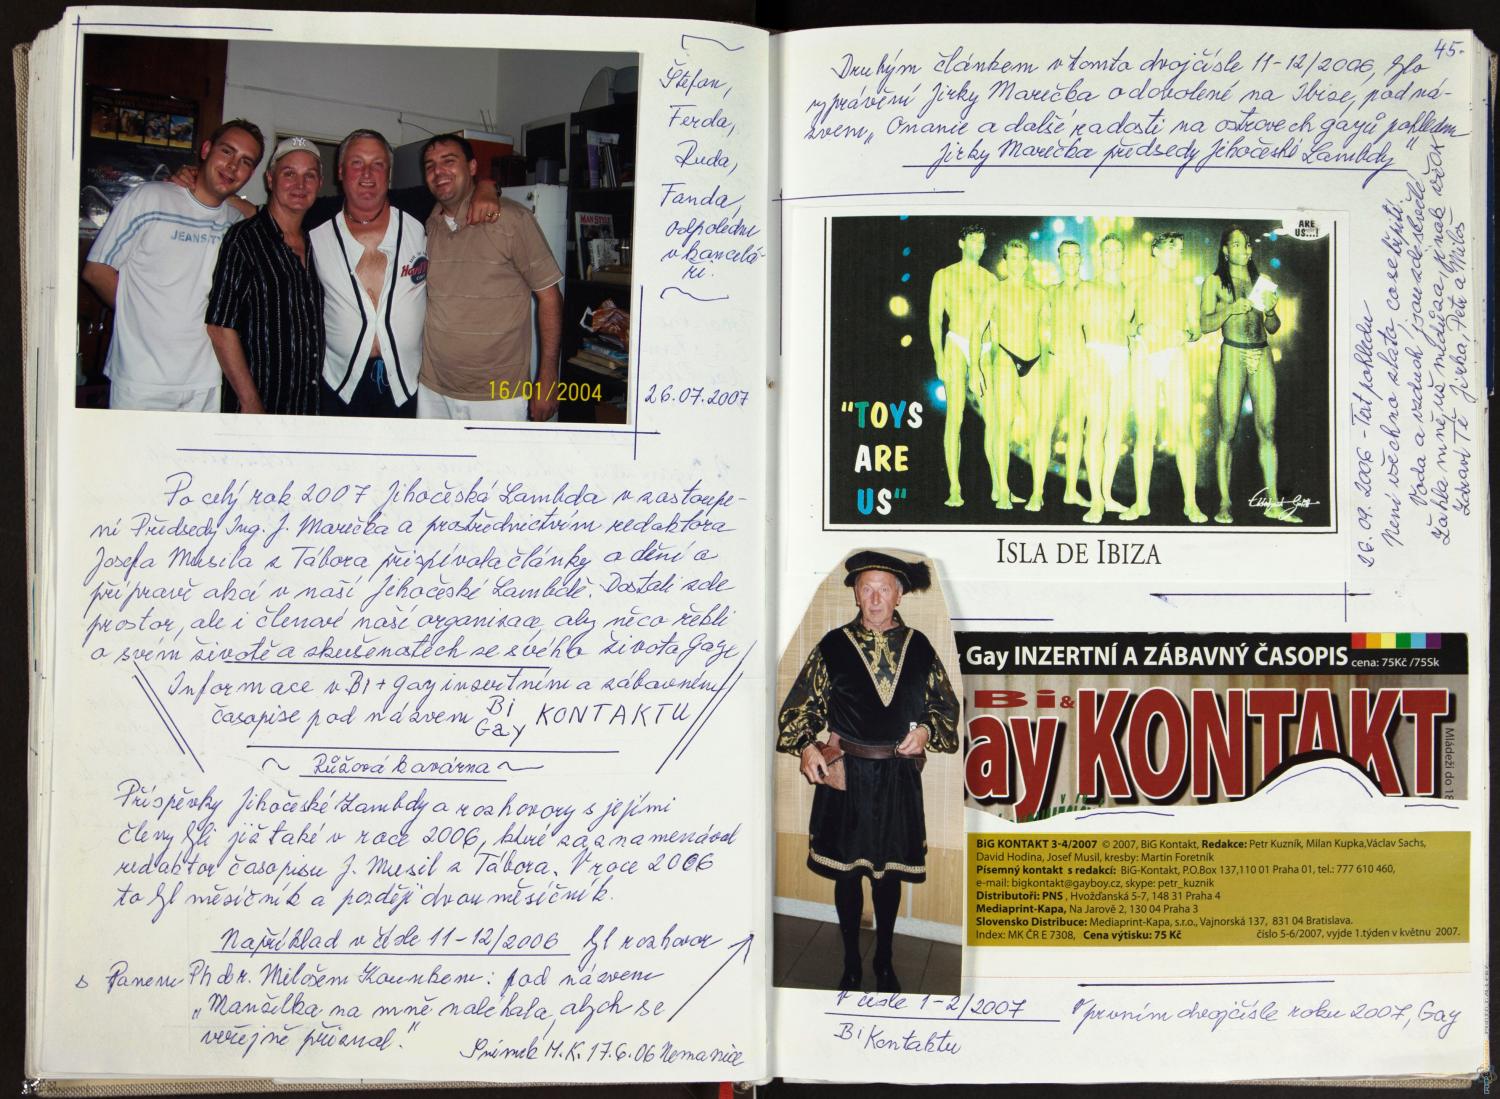 Štefan,
Ferda,
Ruda,
Fanda,
odpoledne
v kancelá-
ři.
JEANS
MAN STYLE
16/01/2004
26.07.2007
Po celý rok 2007 Jihočeská Lambda v zastoupe-
ní Předsedy Ing. J. Marečka a prostřednictvím redaktora
Josefa Musila z Tábora přispívala články o dění a
přípravě akcí v naší Jihočeské Lambdě. Dostali zde
prostor, ale i členové naší organizace, aby něco řekli
o svém životě a zkušenostech ze svého života Gaye
Informace v Bi + gay inzertním a zábavném
časopise pod názvem Bi Gay KONTAKTU
~ Růžová kavárna ~
Příspěvky Jihočeské Lambdy a rozhovory s jejími
členy byli již také v roce 2006, které zaznamenával
redaktor časopisu J. Musil z Tábora. V roce 2006
to byl měsíčník a později dvouměsíčník.
Například v čísle 11-12/2006 byl rozhovor
s Panem Phdr. Milošem : pod názvem
„Manželka na mně naléhala, abych se
veřejně přiznal."
Snímek M.K. 17.6.06 Nemanice
45.
Druhým článkem v tomto dvojčísle 11-12/2006, bylo
vyprávění Jirky Marečka o dovolené na Ibize, pod ná-
zvem „Onanie a další radosti na ostrovech gayů pohledem
Jirky Marečka předsedy Jihočeské Lambdy"
ARE
US...!
"TOYS
ARE
US"
ISLA DE IBIZA
26.09.2006 - Text pohledu
Není všechno zlato, co se třpytí!
Voda a vzduch jsou zde skvělé
Zdraví Tě Jirka, Petr a Miloš
Gay INZERTNÍ A ZÁBAVNÝ ČASOPIS cena: 75Kč /75Sk
Bi&
ay KONTAKT
Mládeži do 18
BiG KONTAKT 3-4/2007 © 2007, BiG Kontakt, Redakce: Petr Kuzník, Milan Kupka,Václav Sachs,
David Hodina, Josef Musil, kresby: Martin Foretník
Písemný kontakt s redakcí: BiG-Kontakt, P.O.Box 137,110 01 Praha 01, tel.: 777 610 460,
e-mail: bigkontakt@gayboy.cz, skype: petr_kuznik
Distributoři: PNS , Hvožďanská 5-7, 148 31 Praha 4
Mediaprint-Kapa, Na Jarově 2, 130 04 Praha 3
Slovensko Distribuce: Mediaprint-Kapa, s.r.o., Vajnorská 137, 831 04 Bratislava.
Index: MK ČR E 7308, Cena výtisku: 75 Kč číslo 5-6/2007, vyjde 1.týden v květnu 2007.
V čísle 1-2/2007 V prvním dvojčísle roku 2007, Gay
Bi Kontaktu